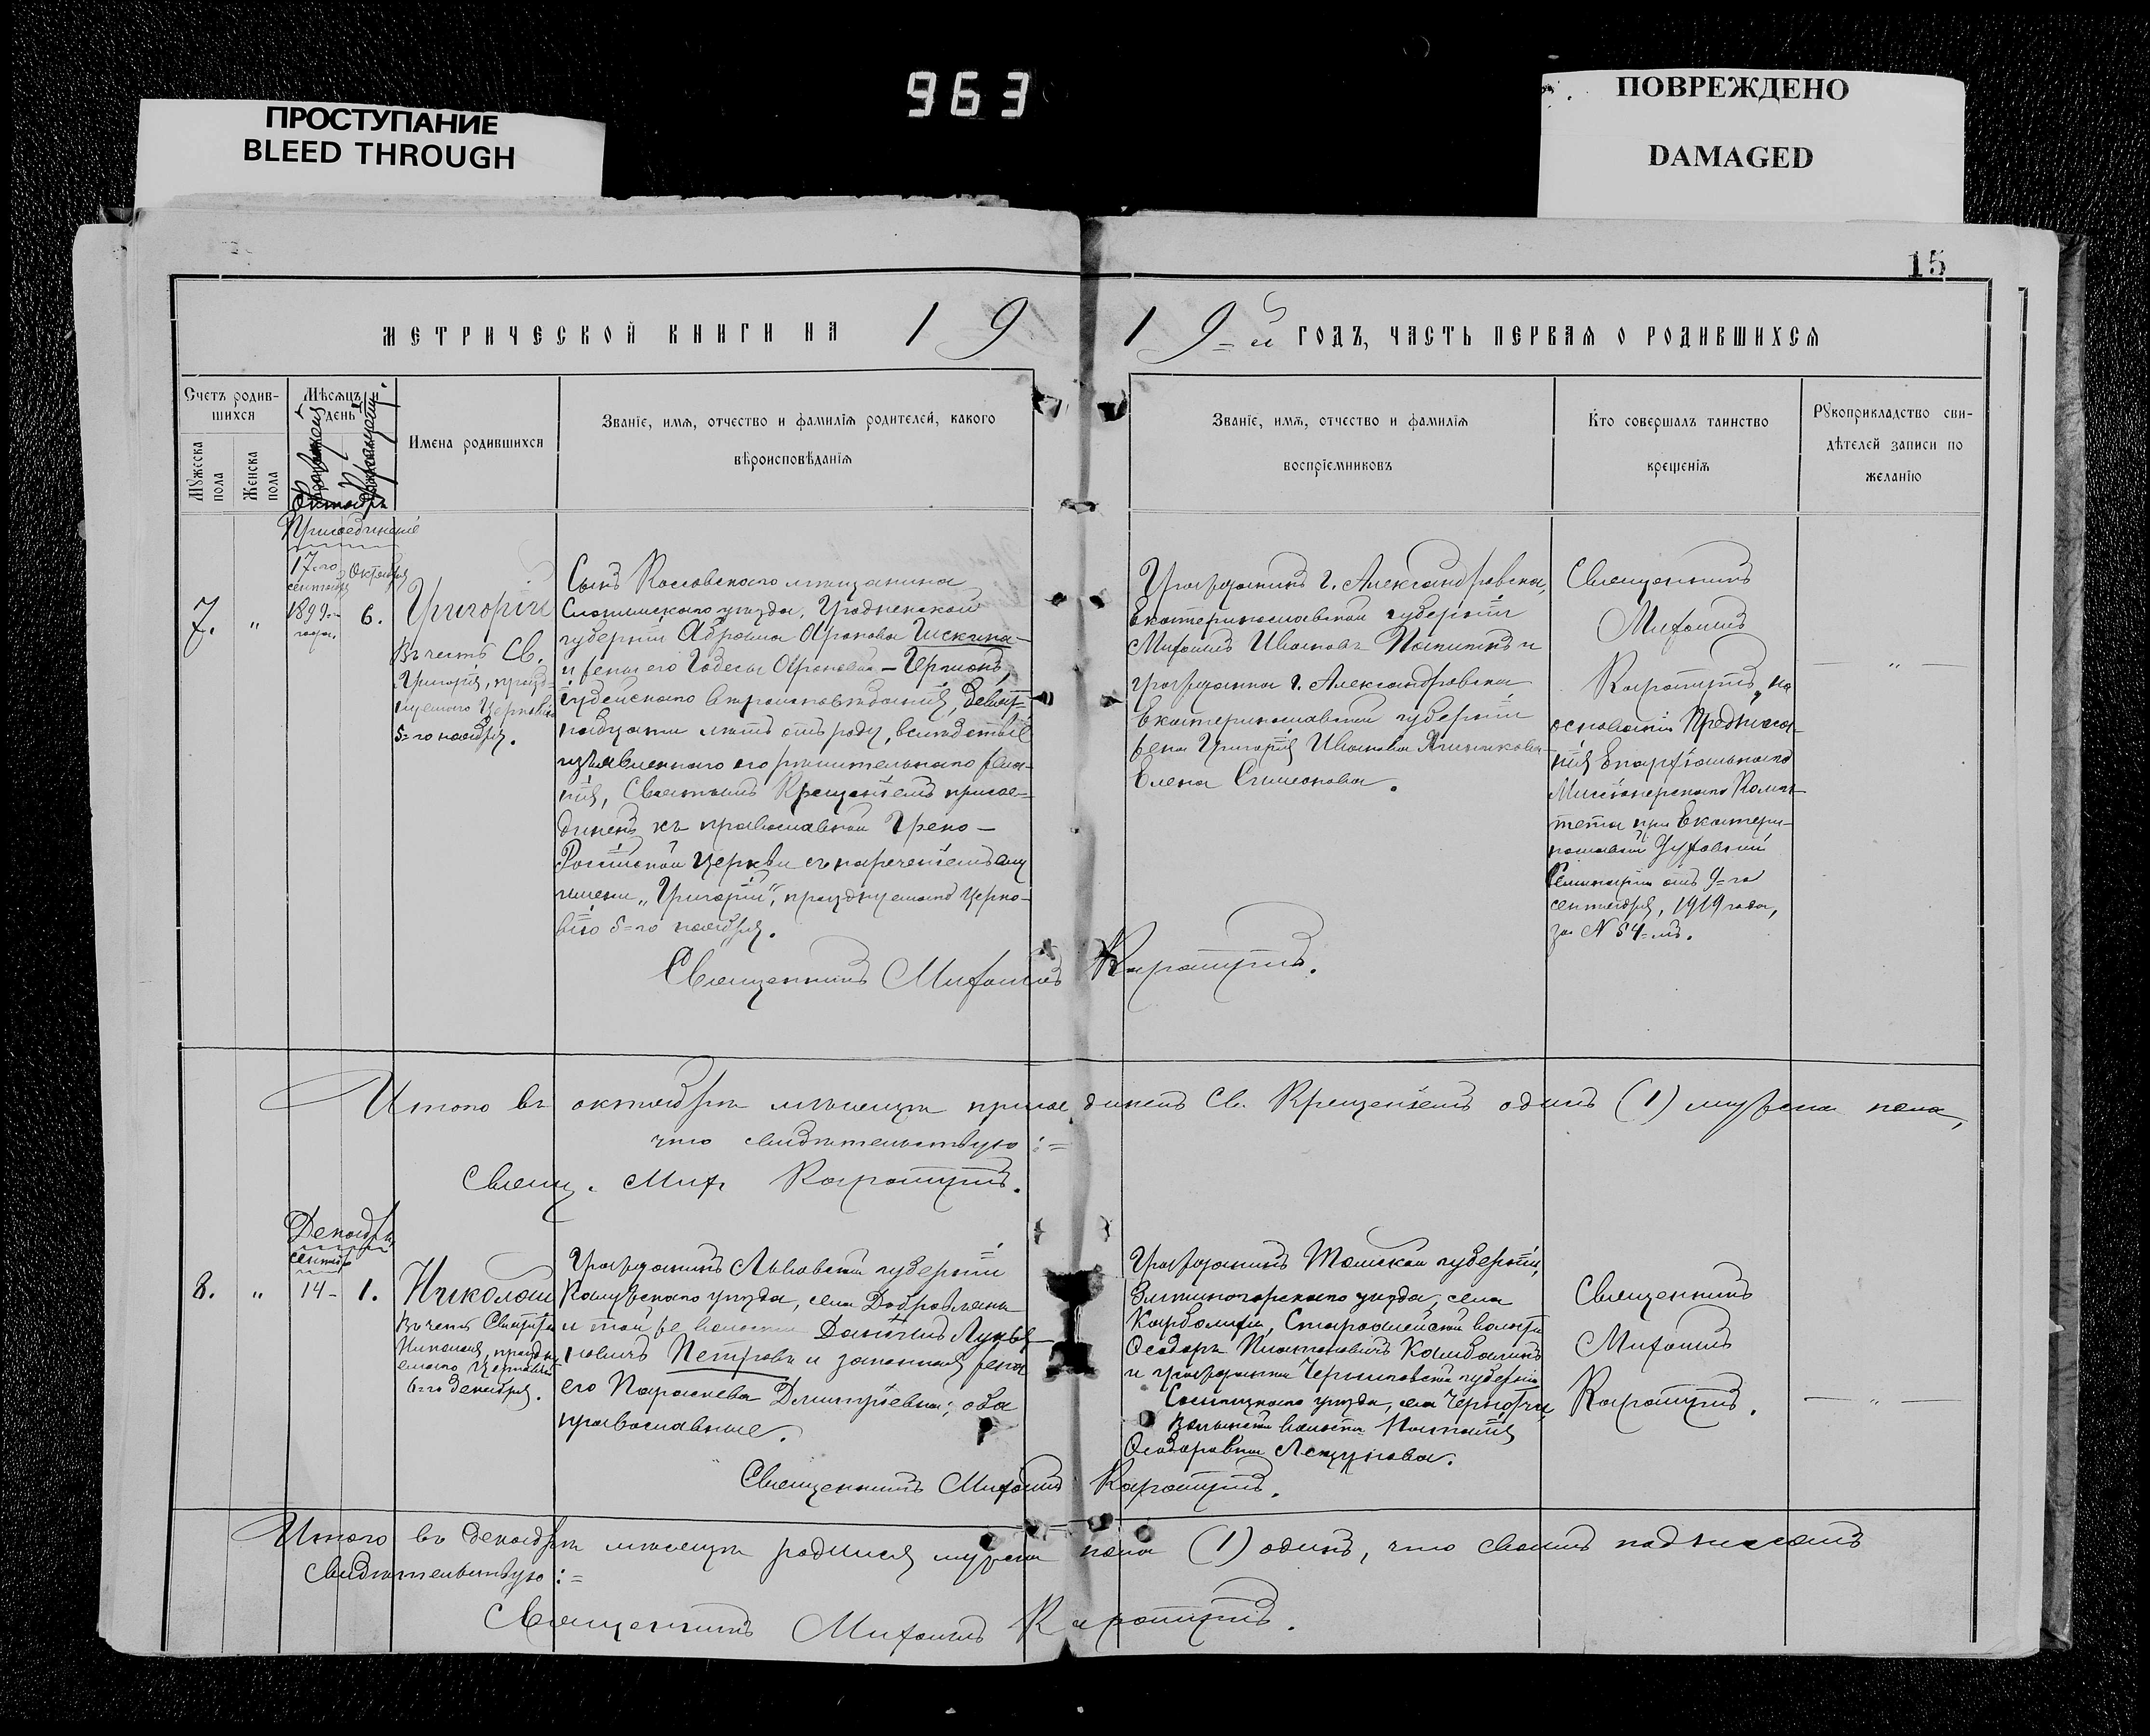 963
ПРОСТУПАНИЕ
BLEED THROUGH
ПОВРЕЖДЕНО
DAMAGED
15
МЕТРИЧЕСКОЙ КНИГИ НА 19 19=й ГОДЪ, ЧАСТЬ ПЕРВАЯ О РОДИВШИХСЯ
Счетъ родив-
шихся
Мужеска
пола
Женска
пола
Мѣсяцъ
день
Имена родившихся
Званіе, имя, отчество и фамилія родителей, какого
вѣроисповѣданія
Званіе, имя, отчество и фамилія
воспріемниковъ
Кто совершалъ таинство
крещенія
Рукоприкладство сви-
дѣтелей записи по
желанію
Присоединеніе
7.
"
17-го
сентября
1899-
года.
Октября
6.
Григорій
Въ честь Св.
Григорія, празд-
нуемаго Церковію
5=го ноября.
Сынъ Коссовскаго мѣщанина
Слонимскаго уѣзда, Гродненской
губерніи Абрама Аронова Шскина
и жены его Годесы Ароновой – Герионъ,
іудейскаго вѣроисповѣданія, девят-
надцати лѣтъ отъ роду, вслѣдствіе
изъявленнаго его рѣшительнаго жела-
нія, Святымъ Крещеніемъ присое-
диненъ къ православной Греко –
Россійской Церкви съ нареченіемъ ему
имени „Григорій", празднуемаго Церко-
вію 5=го ноября.
Гражданинъ г. Александровска,
Екатеринославской губерніи
Михаилъ Ивановъ и
гражданка г. Александровска
Екатеринославской губерніи
жена Григорія Иванова
Елена Симеонова.
Священникъ
Михаилъ
на
основаніи Предписа-
нія Епархіальнаго
Миссіонерскаго Коми-
тета при Екатери-
нославской Духовной
Семинаріи отъ 9=го
сентября, 1919 года,
за N 54-мъ.
— " —
Священникъ Михаилъ
Итого въ октябрѣ мѣсяцѣ присоединенъ Св. Крещеніемъ одинъ (1) мужска пола,
что свидѣтельствую :=
Свящ. Мих.
Декабрь
8.
"
сентяб.
14-
1.
Николай
Въ честь Святителя
Николая, праздну-
емаго Церковію
6=го декабря.
Гражданинъ Львовской губерніи
Калужскаго уѣзда, села Добровляны
и той же волости Даніилъ Лукья-
новичъ Петровъ и законная жена
его Параскева Димитріевна; оба
православные.
Гражданинъ Томской губерніи,
Змѣиногорскаго уѣзда, села
Карболихи, Староалейской волости
Ѳеодоръ Платоновичъ
и гражданка Черниговской губерніи
Сосницкаго уѣзда, села
волости Наталія
Ѳеодоровна
Священникъ
Михаилъ
— " —
Священникъ Михаилъ
Итого въ декабрѣ мѣсяцѣ родился мужска пола (1) одинъ, что своимъ подписомъ
свидѣтельствую :=
Священникъ Михаилъ